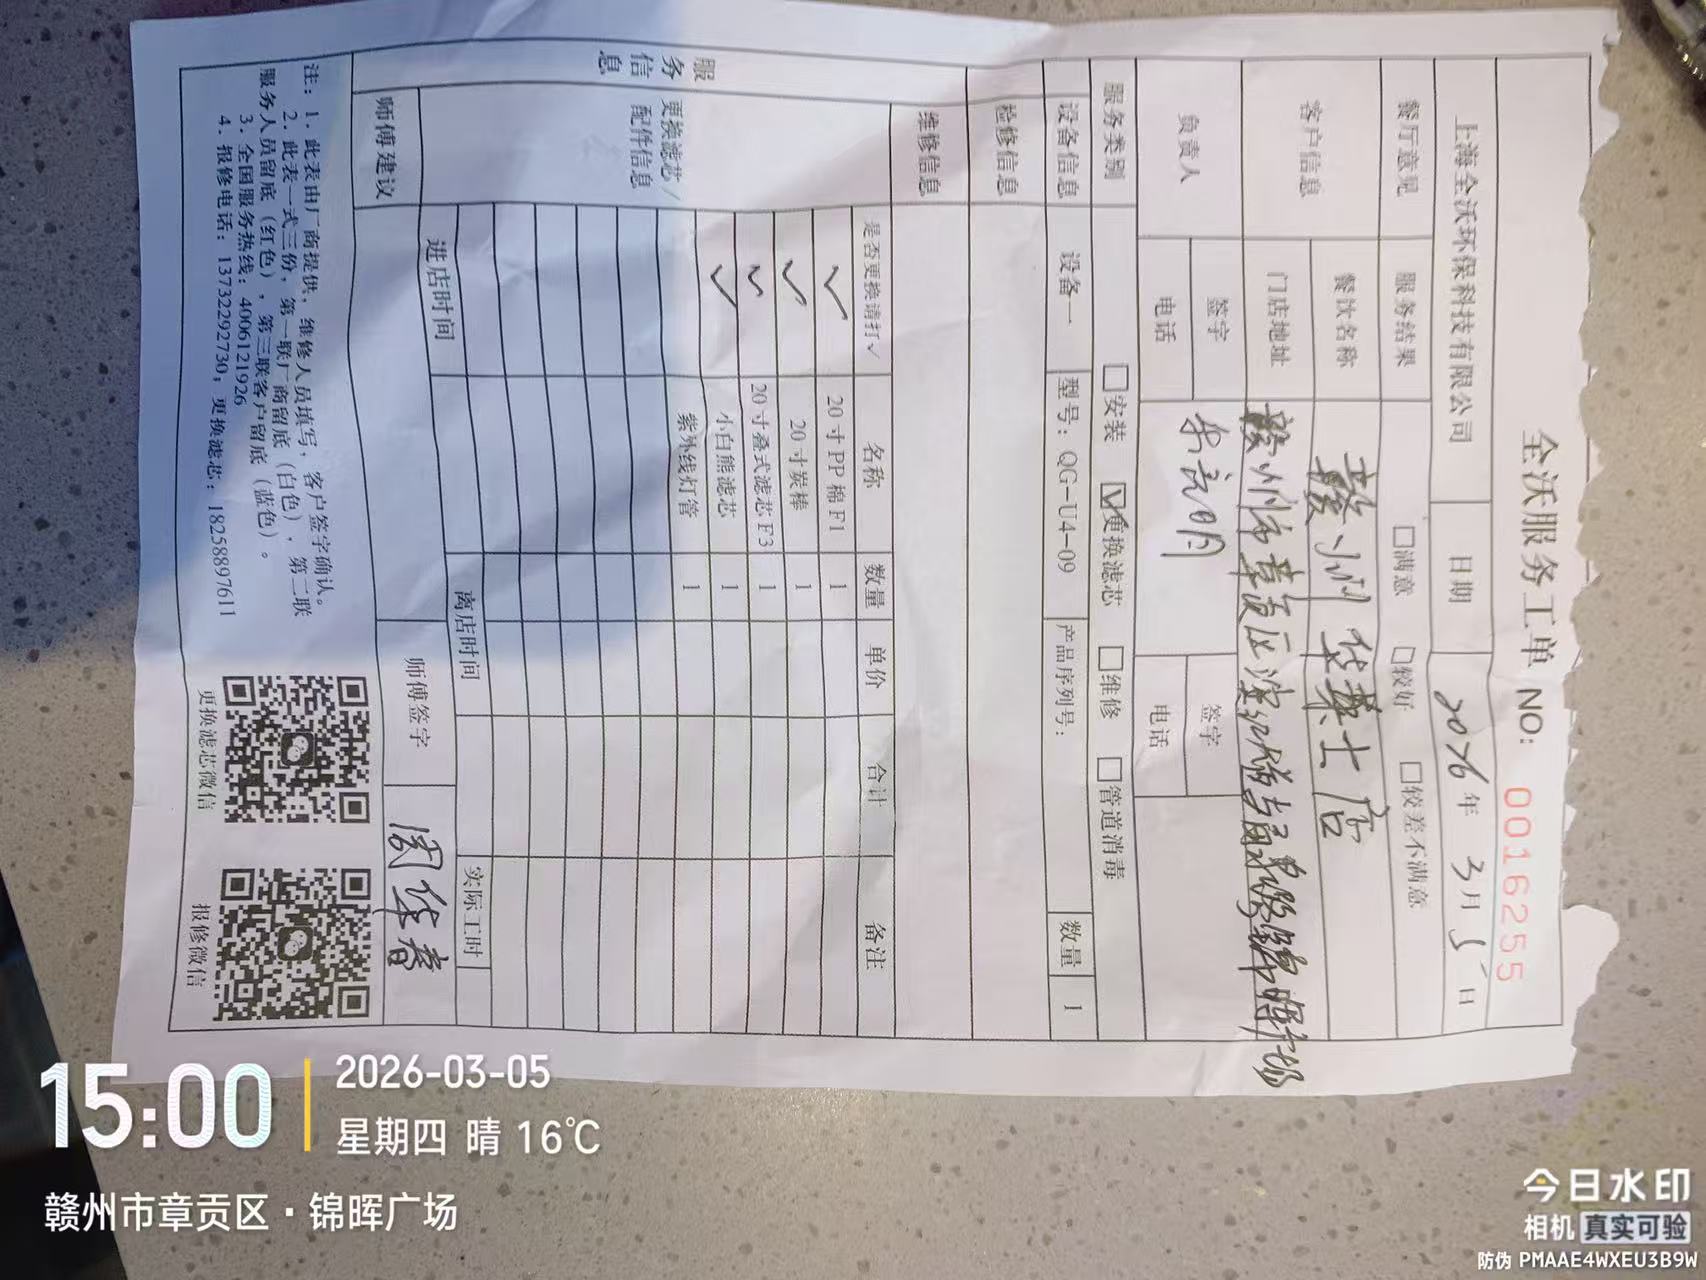 全沃服务工单 NO: 0016255
上海全沃环保科技有限公司 日期 2026年 3月 5日
餐厅意见 服务结果 □满意 □较好 □较差不满意
客户信息 餐饮名称 赣州华莱士店
门店地址 赣州市章贡区 锦晖广场
负责人 签字 签字
电话 电话
服务类别 □安装 ☑更换滤芯 □维修 □管道消毒
设备信息 设备一 型号：QG-U4-09 产品序列号： 数量 1
检修信息
维修信息
服务信息
更换滤芯/配件信息
是否更换请打✓ 名称 数量 单价 合计 备注
✓ 20寸PP棉F1 1
✓ 20寸炭棒 1
✓ 20寸叠式滤芯F3 1
✓ 小白熊滤芯 1
紫外线灯管 1
进店时间 离店时间 实际工时
师傅建议 师傅签字 周华春
注：1. 此表由厂商提供，维修人员填写，客户签字确认。
2. 此表一式三份，第一联厂商留底（白色），第二联
服务人员留底（红色），第三联客户留底（蓝色）。
3. 全国服务热线：4006121926
4. 报修电话：13732292730，更换滤芯：18258897611
更换滤芯微信
报修微信
15:00
2026-03-05
星期四 晴 16℃
赣州市章贡区·锦晖广场
今日水印
相机 真实可验
防伪 PMAAE4WXEU3B9W